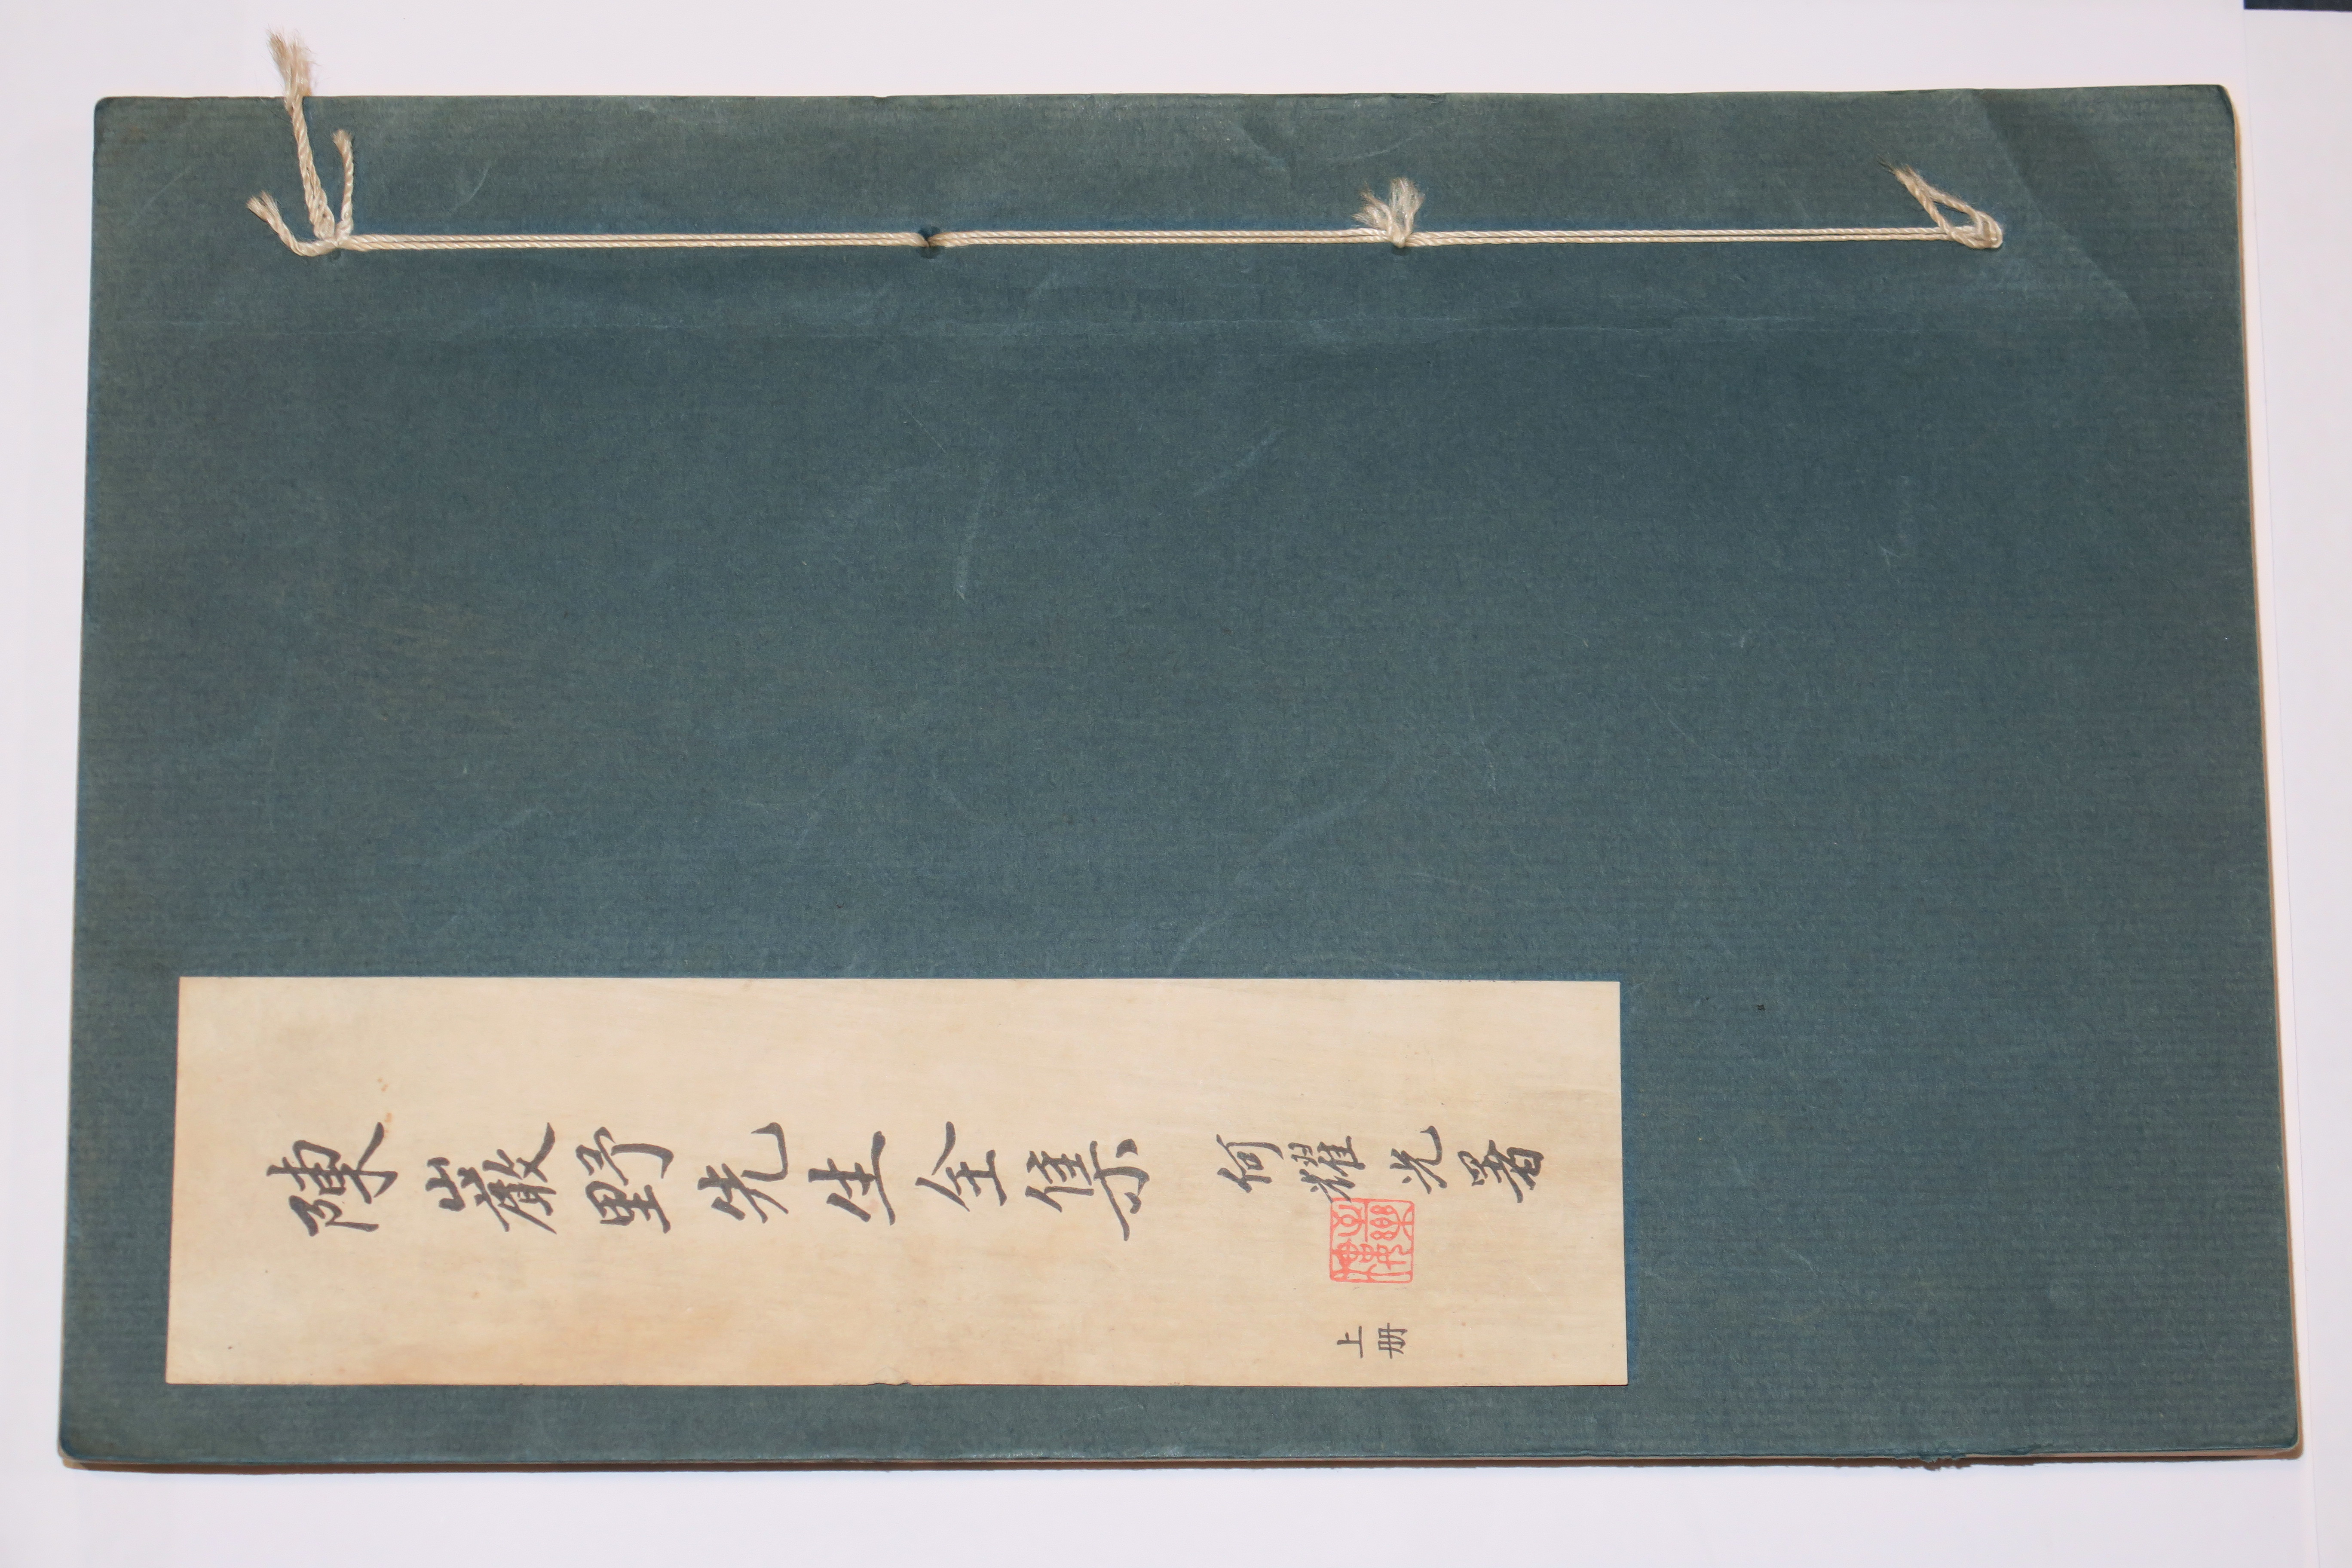 陳巖野先生全集
何耀光署
上册